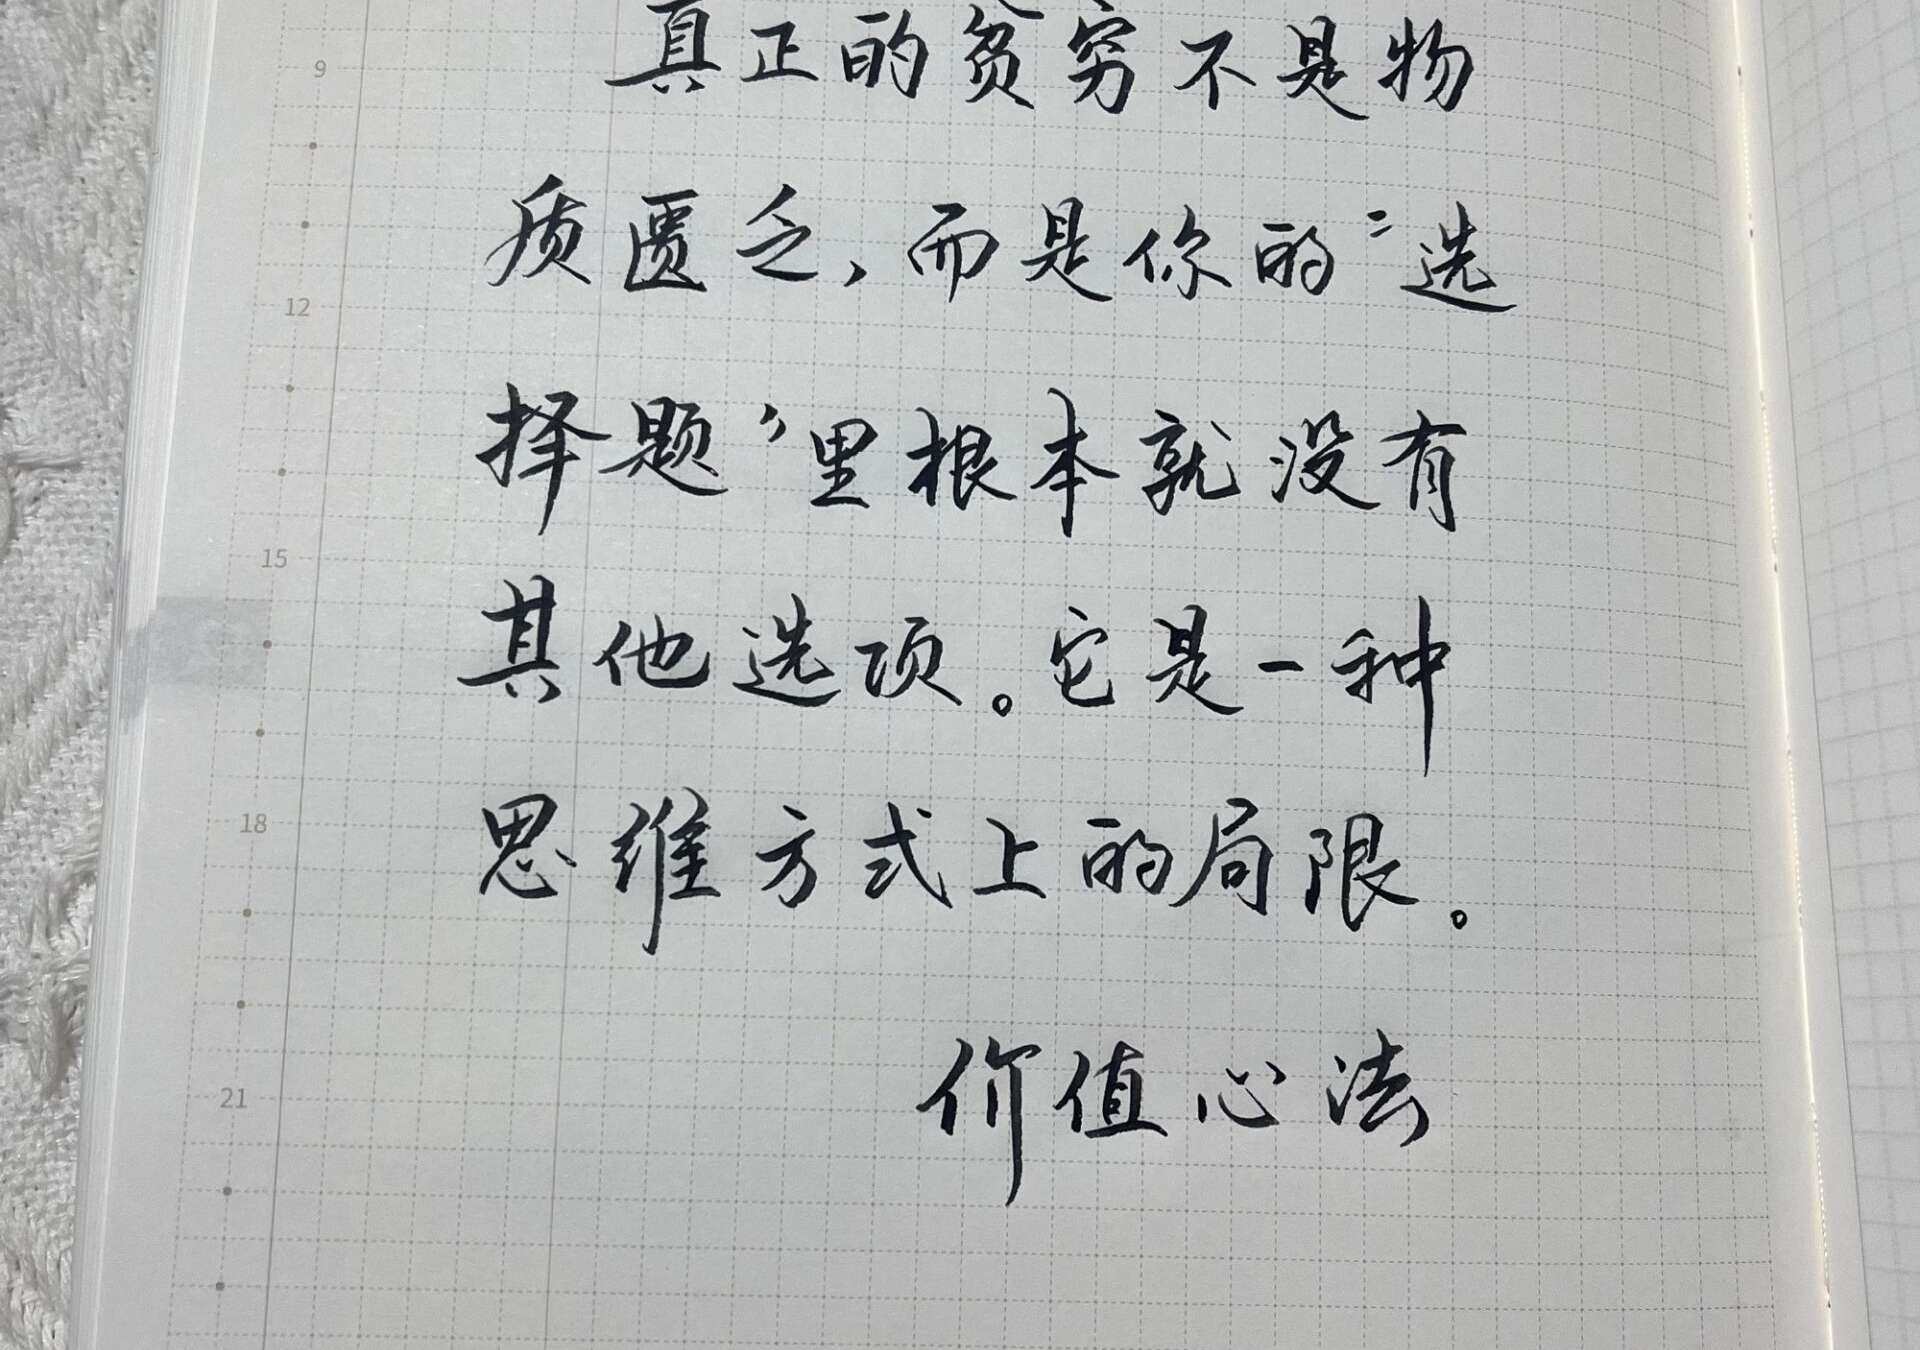 真正的贫穷不是物
质匮乏,而是你的“选
择题”里根本就没有
其他选项。它是一种
思维方式上的局限。
价值心法
9
12
15
18
21